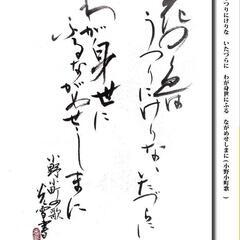 つりにけりな いたづらに わが身世にふる ながめせしまに(小野小町歌 )
花の色は
うつりにけりないたづらに
わが身世に
ふるながめせしまに
小野小町の歌
書